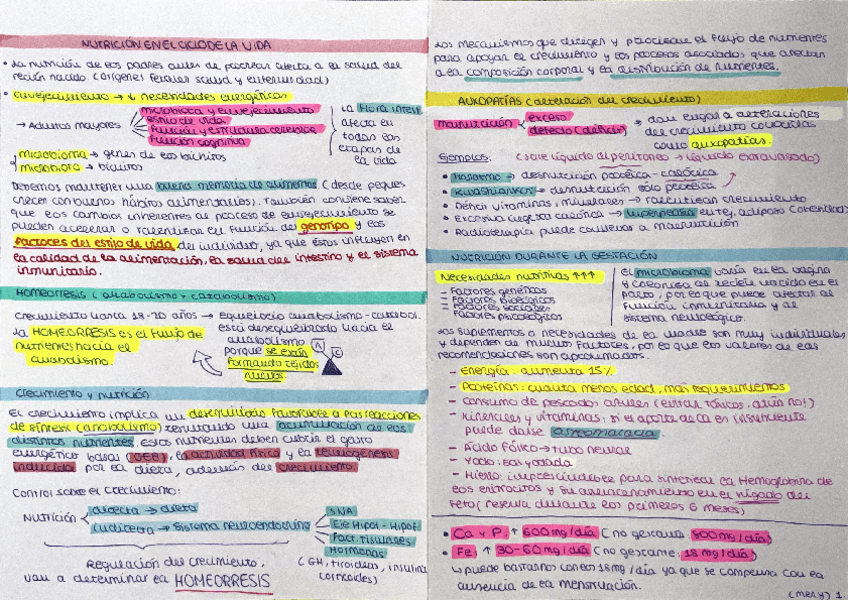 NUTRICIÓN EN EL CICLO DE LA VIDA
• La nutrición de los padres antes de procrear afecta a la salud del
recién nacido (orígenes fetales salud y enfermedad)
• Envejecimiento → ↓ necesidades energéticas
→ Adultos mayores
microbiota y envejecimiento
estilo de vida
función y estructura cerebral
función cognitiva
La flora intest
afecta en
todas las
etapas de
la vida
microbioma → genes de los bichitos
microbiota → bichitos
Debemos mantener una buena memoria de alimentos (desde peques
crecer con buenos hábitos alimentarios). También conviene saber
que los cambios inherentes al proceso de envejecimiento se
pueden acelerar o ralentizar en función del genotipo y los
factores del estilo de vida del individuo, ya que éstos influyen en
la calidad de la alimentación, la salud del intestino y el sistema
inmunitario.
HOMEORRESIS (anabolismo + catabolismo)
Crecimiento hasta 18-20 años → equilibrio anabolismo-catabol.
La HOMEORRESIS es el flujo de
nutrientes hacia el
anabolismo.
está desequilibrado hacia el
anabolismo
porque se están
formando tejidos
nuevos
A
C
Crecimiento y nutrición
El crecimiento implica un desequilibrio favorable a las reacciones
de síntesis (anabolismo) resultando una acumulación de los
distintos nutrientes. Estos nutrientes deben cubrir el gasto
energético basal (GEB), la actividad física y la termogénesis
inducida por la dieta, además del crecimiento.
Control sobre el crecimiento:
Nutrición
directa → dieta
indirecta → sistema neuroendocrino
SNA
Eje Hipot - Hipof
Fact. tisulares
Hormonas
(GH, tiroideas, insulina
corticoides)
Regulación del crecimiento,
van a determinar la HOMEORRESIS
Los mecanismos que dirigen y priorizan el flujo de nutrientes
para apoyar el crecimiento y los procesos asociados que afectan
a la composición corporal y la distribución de nutrientes.
AUXOPATÍAS (alteración del crecimiento)
malnutrición
exceso
defecto (déficit)
→ dan lugar a alteraciones
del crecimiento conocidas
como auxopatías.
Ejemplos: (sale líquido al peritoneo → líquido extravasado)
• Marasmo → desnutrición proteica - calórica
• Kwashiorkor → desnutrición sólo proteica
• Déficit vitaminas, minerales → ralentizan crecimiento
• Excesiva ingesta calórica → hiperplasia en tej. adiposo (obesidad)
• Radioterapia puede conllevar a malnutrición
NUTRICIÓN DURANTE LA GESTACIÓN
Necesidades nutritivas ↑↑↑
- Factores genéticos
- Factores biológicos
- Factores sociales
- Factores psicológicos
El microbioma varía en la vagina
y coloniza al recién nacido en el
parto, por lo que puede afectar al
función inmunitaria y al
sistema neurológico.
Los suplementos o necesidades de la madre son muy individuales
y dependen de muchos factores, por lo que los valores de las
recomendaciones son aproximados.
- Energía: aumenta 15%
- Proteínas: cuanta menos edad, más requerimientos
- Consumo de pescados azules (evitar tóxicos, atún no!)
- Minerales y vitaminas: si el aporte de Ca es insuficiente
puede darse osteomalacia.
- Ácido Fólico → tubo neural
- Yodo: sal yodada
- Hierro: imprescindible para sintetizar la Hemoglobina de
los eritrocitos y su almacenamiento en el hígado del
feto (reserva durante los primeros 6 meses)
• Ca y P: ↑ 600mg/día (no gestante 800mg/día)
• Fe: ↑ 30-60mg/día (no gestante, 18mg/día)
↳ puede bastarnos con los 18mg/día ya que se compensa con la
ausencia de la menstruación.
(mery) 1.